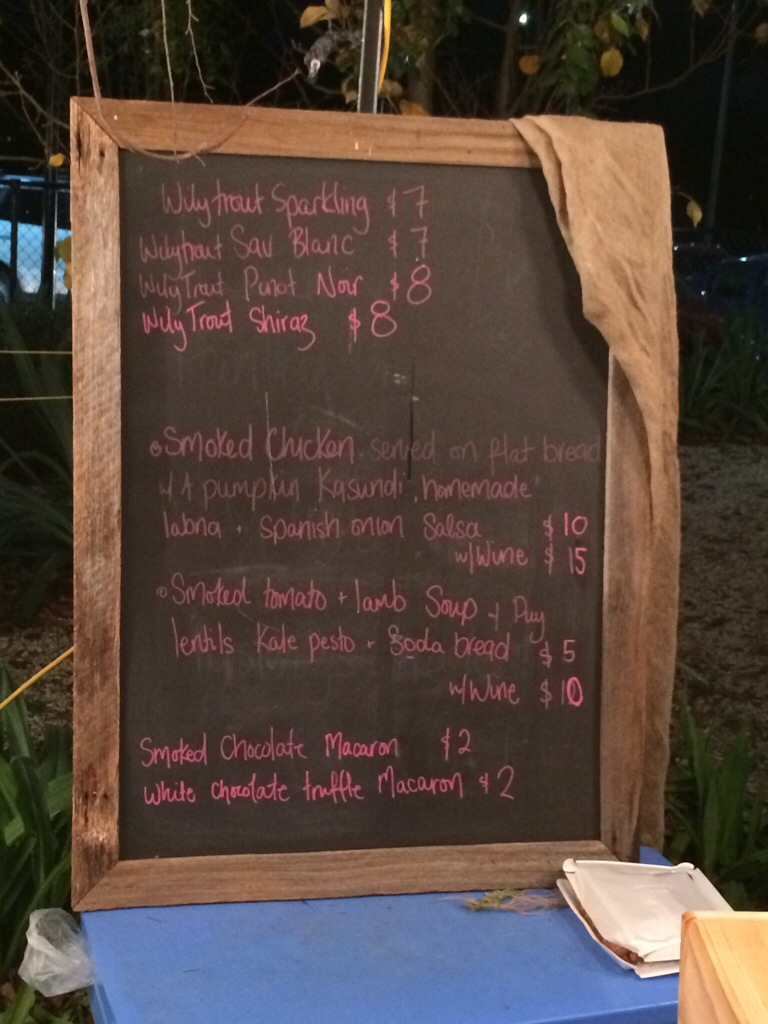 Wilytrout Sparkling $7
Wilytrout Sav Blanc $7
WilyTrout Pinot Noir $8
WilyTrout Shiraz $8
Smoked Chicken served on flat bread
w/ A pumpkin Kasundi, 'homemade'
labna + Spanish onion Salsa $10
w/Wine $15
Smoked tomato + lamb Soup + Puy
lentils Kale pesto + Soda bread $5
w/Wine $10
Smoked Chocolate Macaron $2
White chocolate truffle Macaron $2